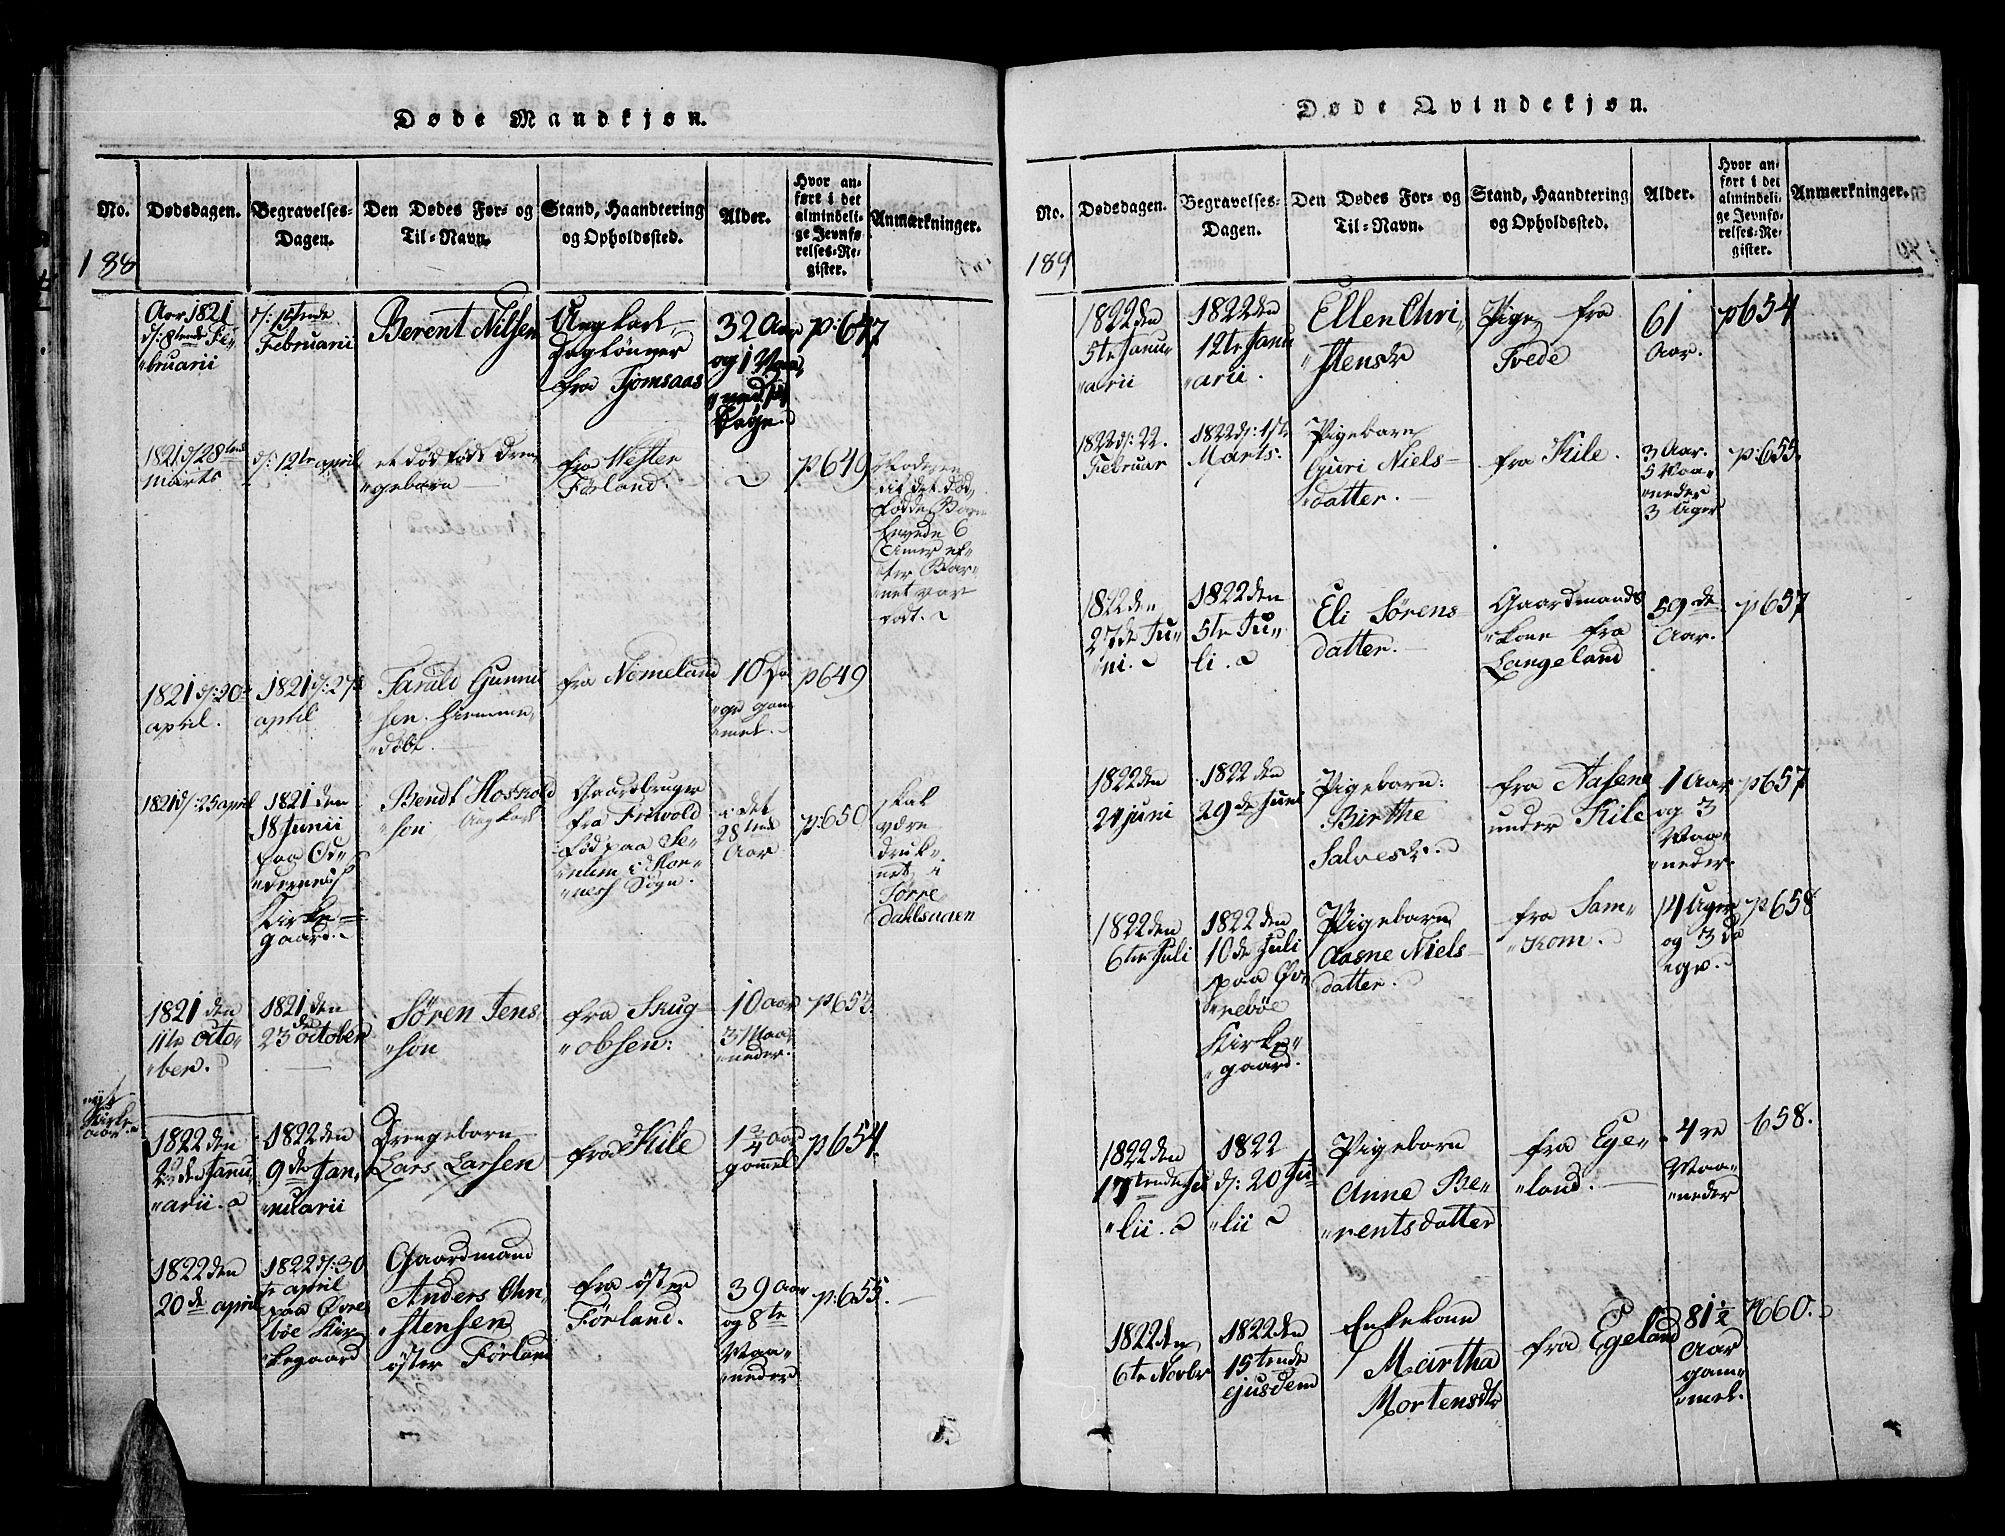 Døde Mandkjøn.
No.
Dødsdagen.
Begravelses-
Dagen.
Den Dødes For- og
Til-Navn.
Stand, Haandtering
og Opholdssted.
Alder.
Hvor an-
ført i det
almindeli-
ge Jevnfø-
relses-Re-
gister.
Anmærkninger.
188
Aar 1821
d: 8tende Fe-
bruarii
d: 15tende
Februarii
Berent Nilsen
Ungkarl
Daglønner
fra Tjomsaas
32 Aar
og 1 Maa-
ned
Dage.
p: 647
1821 d: 28tende
Marts
d: 12te april
et dødfødt Dren-
gebarn
fra Wester
Førland.
p 649
Moderen
til det død
fødde Barn
levede 6
Timer ef-
ter Bar-
net var
født.
1821 d: 20
april.
1821 d: 27de
april
Tarald Gunnu
sen. hiemme-
døbt.
fra Nomeland
10 Da
ge gam
mel.
p 649
1821 d: 25 april
1821 den
18 Junii
paa Od-
dernes
Kirke-
gaard.
Bendt Aloskold
søn. Ungkarl
Gaardbruger
fra Frivold
fød paa Se-
num i Hor-
nes Sogn.
i det
28tende
Aar
p: 650
skal
være
druk-
net i
Torre
dahlsaaen
1821 den
11te Octo-
ber.
1821 den
23de October
Søren Jens
søn
fra Skug-
obsen:
10 aar
3 Maa-
neder.
p 653
nyt
Kirke-
aar
1822 den
2den Janu
arii.
1822 den
9de Jan-
nuarii
Drengebarn
Lars Larsen
fra Kile
1 3/4 aar
gammel
p 654.
1822 den
20de april
1822 d: 30
te april
paa Øvre
bøe Kir-
kegaard
Gaardmand
Anders Chri-
stensen
øster Førland
fra øster
Førland.
39 Aar
og 8te
Maa-
neder
p: 655.
Døde Qvindekjøn.
No.
Dødsdagen.
Begravelses-
Dagen.
Den Dødes For- og
Til-Navn.
Stand, Haandtering
og Opholdssted.
Alder.
Hvor an-
ført i det
almindeli-
ge Jevnfø-
relses-Re-
gister.
Anmærkninger.
189
1822 den
5te Janu-
arii
1822 den
12te Janu
arii.
Ellen Chri-
stensdr
Pige fra
Tvede
61
Aar.
p 654
1822 d: 22.
Februar
1822 d: 1ste
Marts.
Pigebarn
Guri Niels-
datter.
fra Kile.
3 Aar.
5 Maa-
neder
3 Uger
p: 655.
1822 den
27de Ju-
ni.
1822 den
5te Ju-
li.
Eli Sørens-
datter.
Gaardmands
kone fra
Langeland
59de
Aar.
p 657
1822 den
24 juni
1822 den
29de Juni
Pigebarn:
Birthe
Salvesdr.
fra Aasene
under Kile
1 Aar
og 3
Maa-
neder.
p 657
1822 den
6te Juli
1822 den
10de Juli
paa Øv-
rebøe
Kirke-
gaard.
Pigebarn
Aasne Niels-
datter.
fra Sam-
kom.
14 Uger
og 3 Da
ge.
p 658
1822 den
17tende Ju
lii.
1822
d: 20 Ju-
lii
Pigebarn
Anne Be-
rentsdatter
fra Ege-
land.
4re
Maa-
neder
658.
1822 den
6te Novbr
1822 den
15tende
ejusdem
Enkekone
Martha
Mortensdtr
fra Egeland
81 1/2
Aar
gam-
mel.
p660.